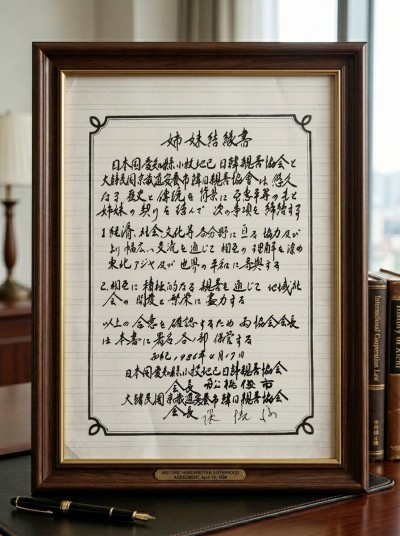 姉妹結縁書
日本国愛知県小牧地区日韓親善協会と
大韓民国京畿道安養市韓日親善協會は悠久
なる歴史と傳統を背景に互恵平等のもと
姉妹の契りを結んで次の事項を締結する
1. 経済、社会文化等各分野に亘る協力及び
より幅広い交流を通じて相互の理解を深め
東北アジヤ及び世界の平和に寄與する
2. 相互に積極的なる親善を通じて地域社
会の開発と繁栄に盡力する
以上の合意を確認するため両協会会長
は本書に署名各1部保管する
西紀1986年4月17日
日本国愛知県小牧地区日韓親善協会
会長 舩橋俊市
大韓民国京畿道安養市韓日親善協会
会長
HISTORIC HANDWRITTEN SISTERHOOD
AGREEMENT, April 1986
International Cooperation Law
History of